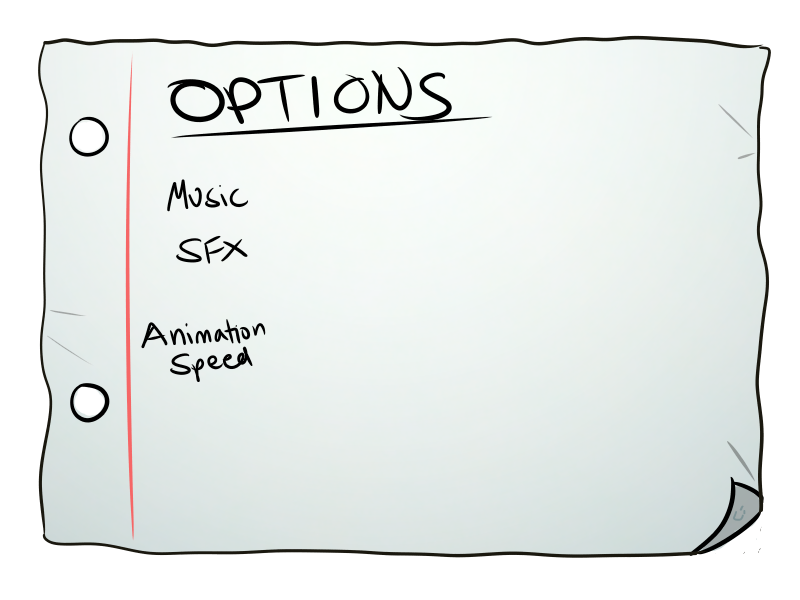 OPTIONS
Music
SFX
Animation
Speed